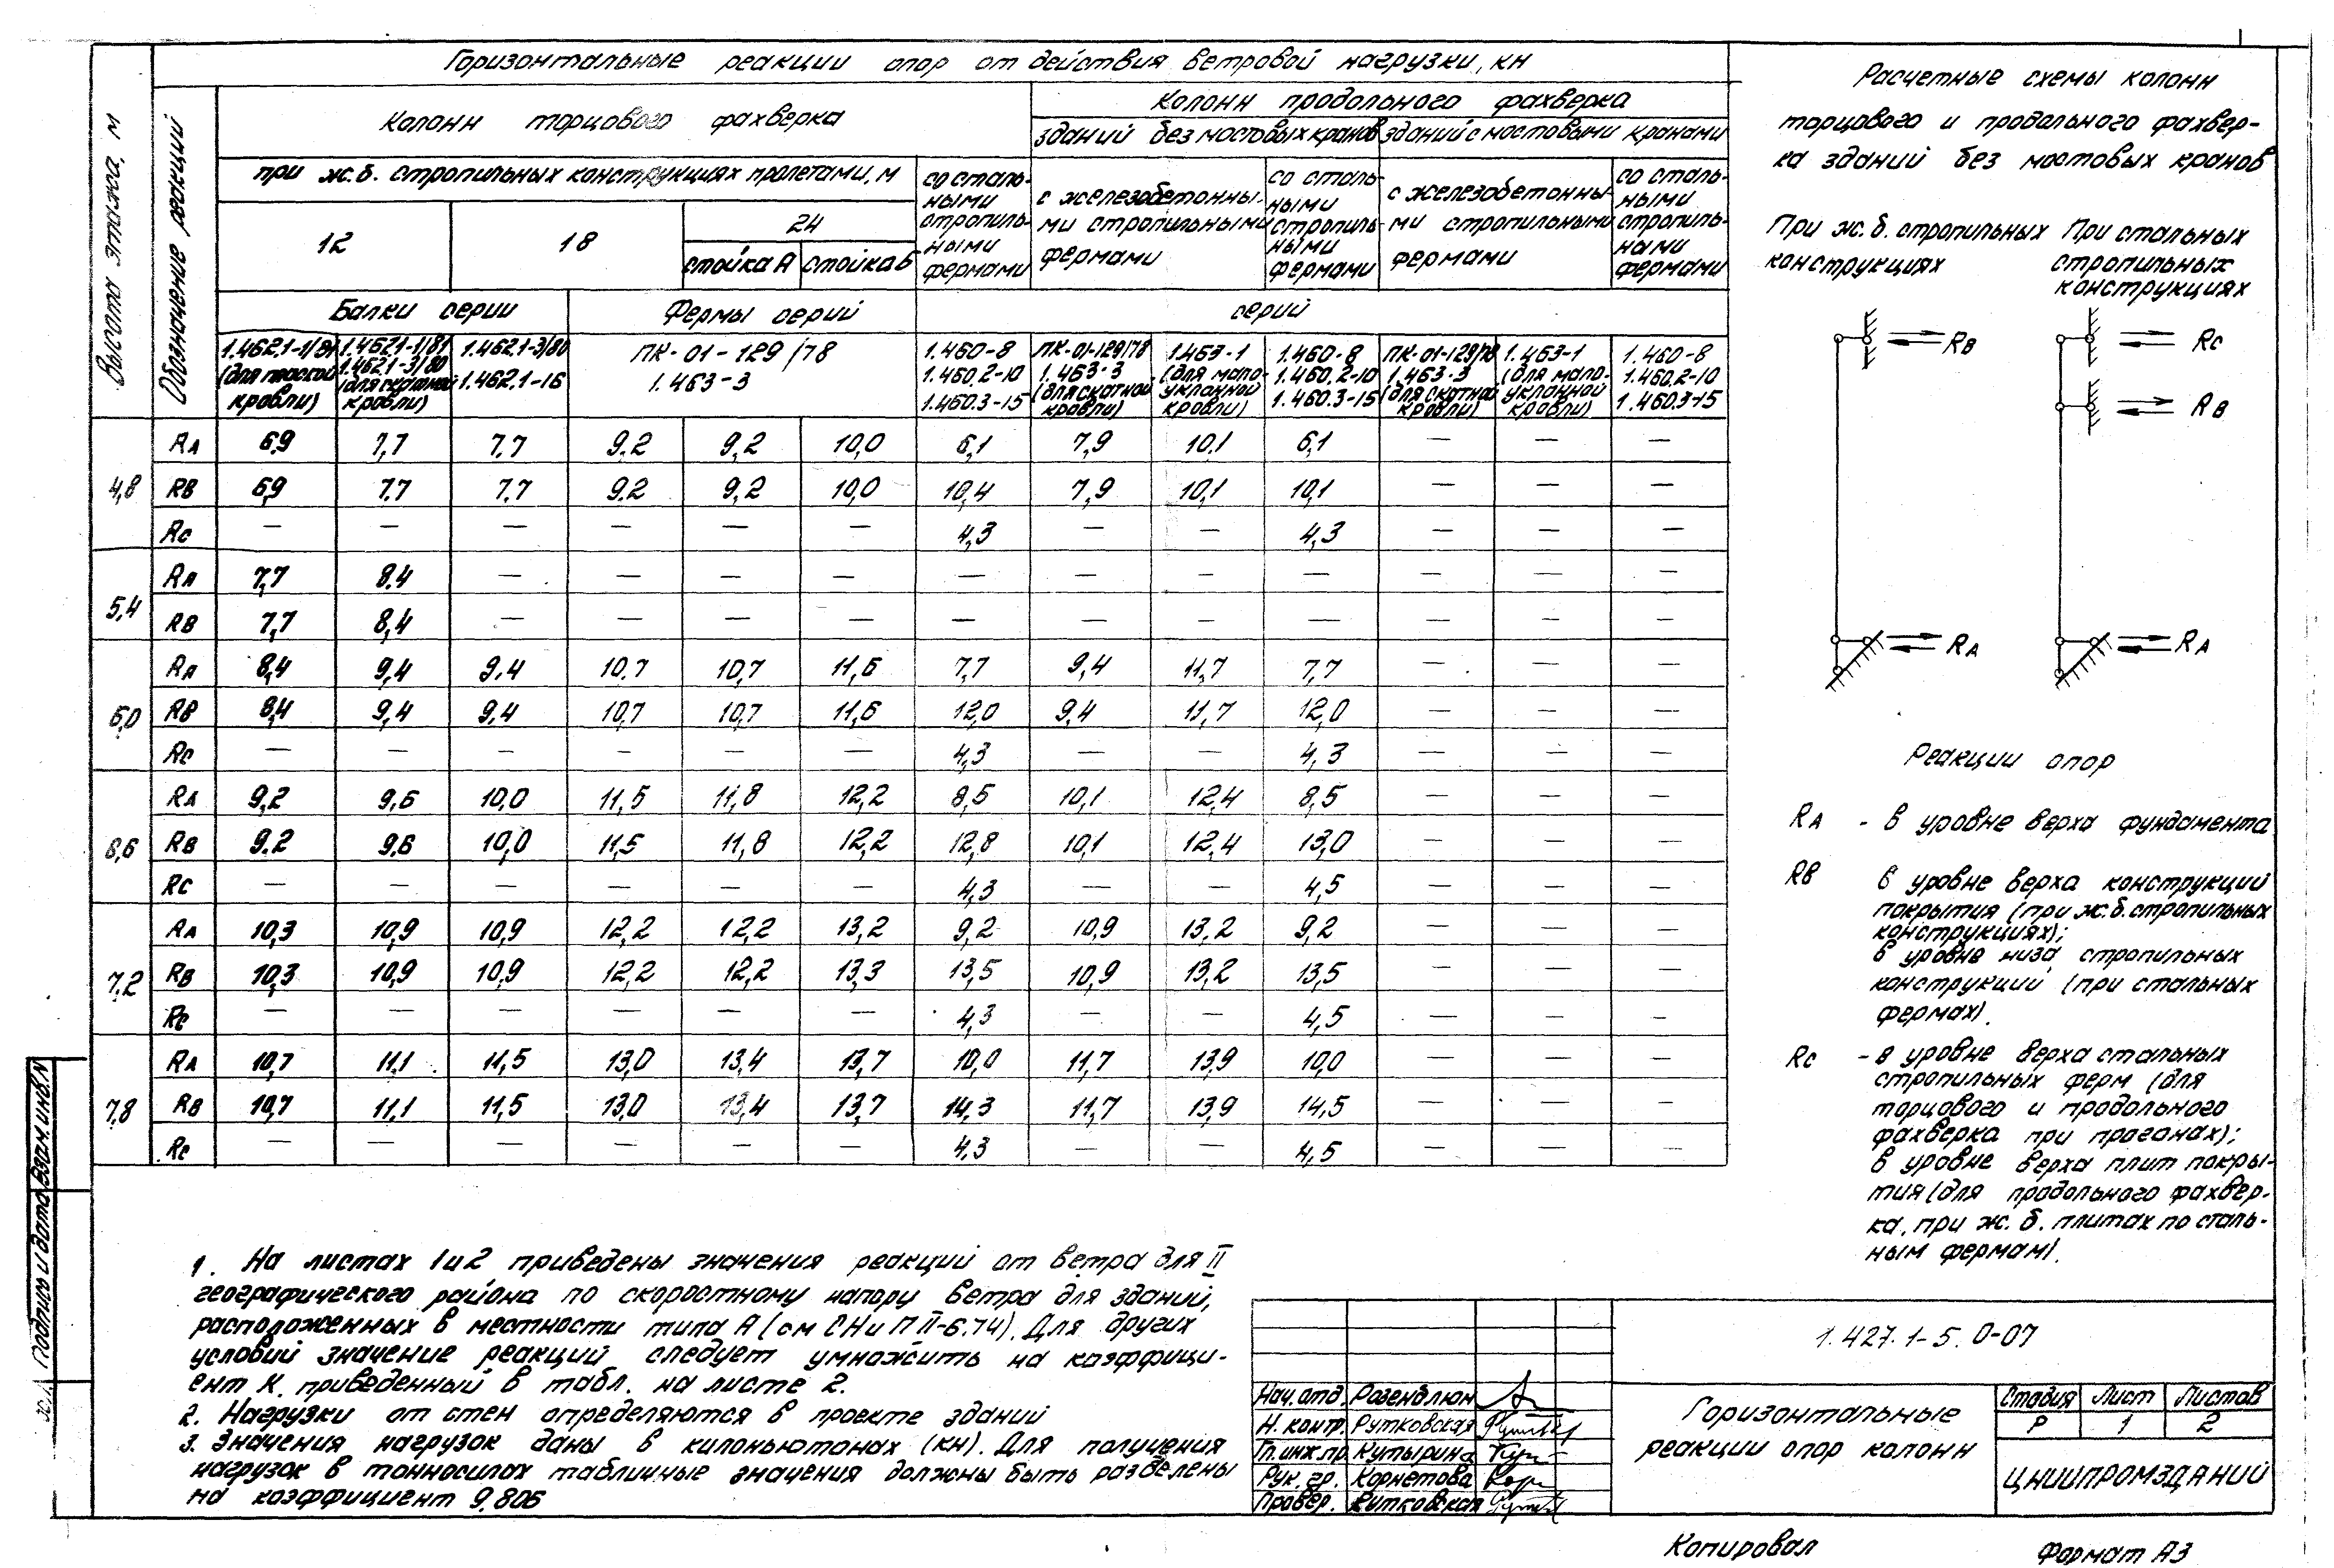 Горизонтальные реакции опор от действия ветровой нагрузки, кн
Высота этажа, м
Обозначение реакций
Колонн торцового фахверка
Колонн продольного фахверка
зданий без мостовых кранов
зданий с мостовыми кранами
при ж.б. стропильных конструкциях пролетами, м
12
18
24
стойка А
стойка Б
со сталь-
ными
стропиль-
ными
фермами
с железобетонны-
ми стропильными
фермами
со сталь-
ными
стропиль-
ными
фермами
с железобетонны-
ми стропильными
фермами
со сталь-
ными
стропиль-
ными
фермами
Балки серии
Фермы серий
серий
1.462.1-1/81
(для плоской
кровли)
1.462.1-1/81
1.462.1-3/80
(для скатной
кровли)
1.462.1-3/80
1.462.1-16
ПК-01-129/78
1.463-3
1.460-8
1.460.2-10
1.460.3-15
ПК-01-129/78
1.463-3
(для скатной
кровли)
1.463-1
(для мало-
уклонной
кровли)
1.460-8
1.460.2-10
1.460.3-15
ПК-01-129/78
1.463-3
(для скатной
кровли)
1.463-1
(для мало-
уклонной
кровли)
1.460-8
1.460.2-10
1.460.3-15
4,8
RA 6,9 7,7 7,7 9,2 9,2 10,0 6,1 7,9 10,1 6,1 — — —
RB 6,9 7,7 7,7 9,2 9,2 10,0 10,4 7,9 10,1 10,1 — — —
RC — — — — — — 4,3 — — 4,3 — — —
5,4
RA 7,7 8,4 — — — — — — — — — — —
RB 7,7 8,4 — — — — — — — — — — —
6,0
RA 8,4 9,4 9,4 10,7 10,7 11,6 7,7 9,4 11,7 7,7 — — —
RB 8,4 9,4 9,4 10,7 10,7 11,6 12,0 9,4 11,7 12,0 — — —
RC — — — — — — 4,3 — — 4,3 — — —
6,6
RA 9,2 9,6 10,0 11,5 11,8 12,2 8,5 10,1 12,4 8,5 — — —
RB 9,2 9,6 10,0 11,5 11,8 12,2 12,8 10,1 12,4 13,0 — — —
RC — — — — — — 4,3 — — 4,5 — — —
7,2
RA 10,3 10,9 10,9 12,2 12,2 13,2 9,2 10,9 13,2 9,2 — — —
RB 10,3 10,9 10,9 12,2 12,2 13,3 13,5 10,9 13,2 13,5 — — —
RC — — — — — — 4,3 — — 4,5 — — —
7,8
RA 10,7 11,1 11,5 13,0 13,4 13,7 10,0 11,7 13,9 10,0 — — —
RB 10,7 11,1 11,5 13,0 13,4 13,7 14,3 11,7 13,9 14,5 — — —
RC — — — — — — 4,3 — — 4,5 — — —
Расчетные схемы колонн
торцового и продольного фахвер-
ка зданий без мостовых кранов
При ж.б. стропильных
конструкциях
При стальных
стропильных
конструкциях
RB
RC
RB
RA
RA
Реакции опор
RA - в уровне верха фундамента
RB в уровне верха конструкций
покрытия (при ж.б. стропильных
конструкциях);
в уровне низа стропильных
конструкций (при стальных
фермах).
RC - в уровне верха стальных
стропильных ферм (для
торцового и продольного
фахверка при прогонах);
в уровне верха плит покры-
тия (для продольного фахвер-
ка, при ж.б. плитах по сталь-
ным фермам).
1. На листах 1 и 2 приведены значения реакций от ветра для II
географического района по скоростному напору ветра для зданий,
расположенных в местности типа А (см СНиП II-6.74). Для других
условий значение реакций следует умножить на коэффици-
ент К, приведенный в табл. на листе 2.
2. Нагрузки от стен определяются в проекте зданий
3. Значения нагрузок даны в килоньютонах (кн). Для получения
нагрузок в тонносилах табличные значения должны быть разделены
на коэффициент 9,806
Взам. инв. N
Подпись и дата
Нач. отд Розенблюм
Н. контр. Рутковская
Гл. инж. пр. Кутырина
Рук. гр. Корнетова
Провер. Рутковская
1.427.1-5.0-07
Горизонтальные
реакции опор колонн
Стадия Лист Листов
Р 1 2
ЦНИИПРОМЗДАНИЙ
Копировал Формат А3